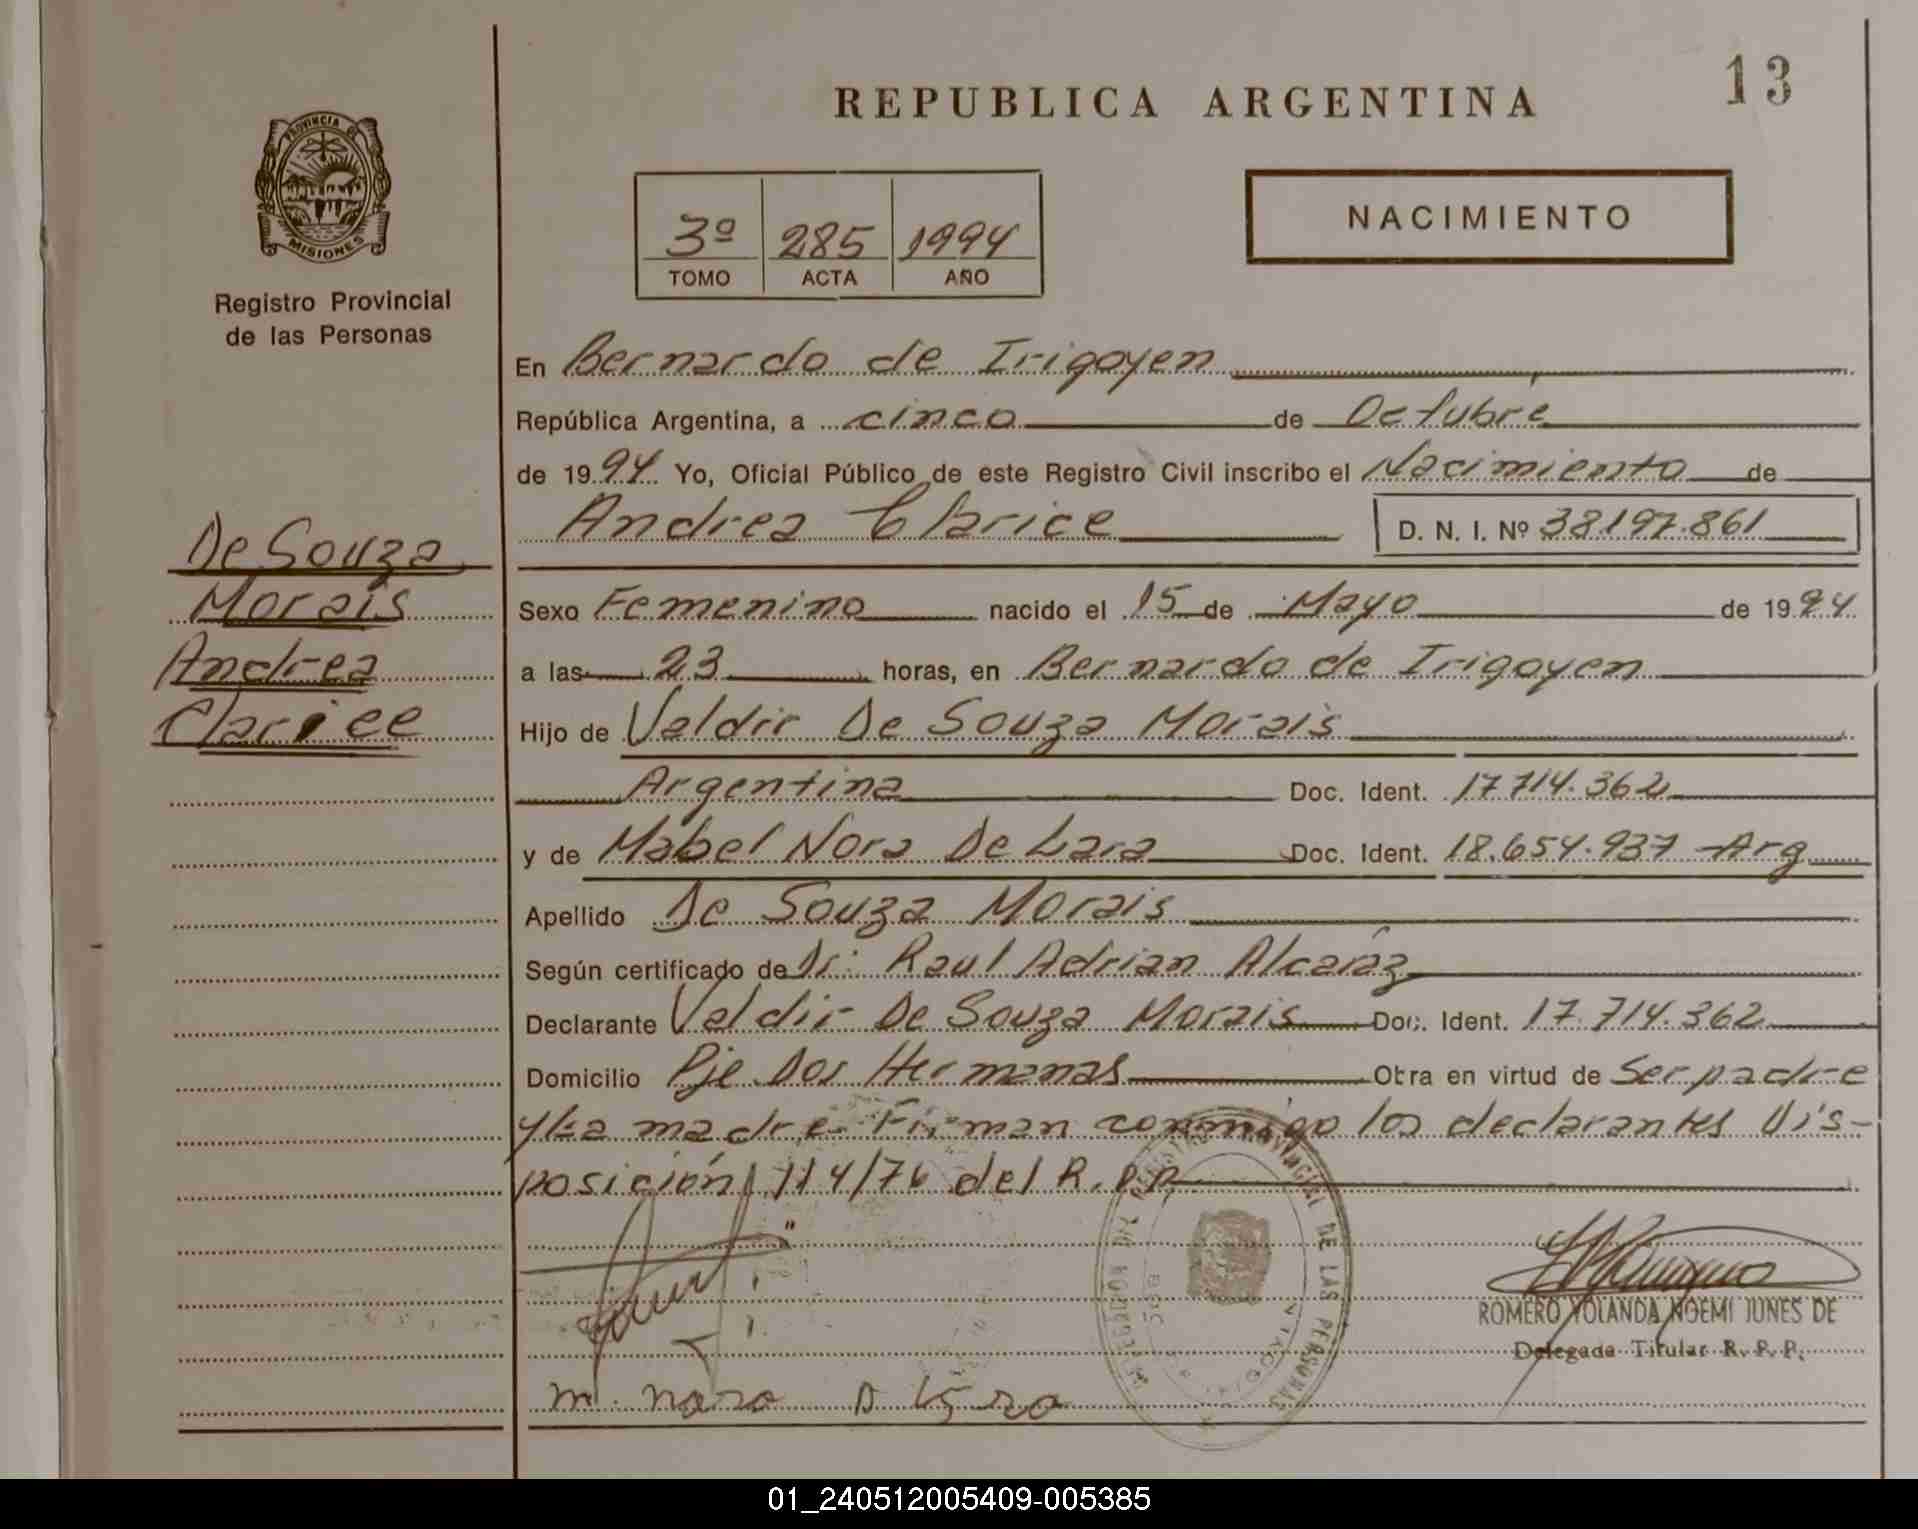 REPUBLICA ARGENTINA
13
PROVINCIA DE
MISIONES
Registro Provincial
de las Personas
3º 285 1994
TOMO ACTA AÑO
NACIMIENTO
En Bernardo de Irigoyen
República Argentina, a cinco de Octubre
de 1994 Yo, Oficial Público de este Registro Civil inscribo el Nacimiento de
Andrea Clarice D. N. I. Nº 38.197.861
De Souza
Morais
Andrea
Clarice
Sexo Femenino nacido el 15 de Mayo de 1994
a las 23 horas, en Bernardo de Irigoyen
Hijo de Valdir De Souza Morais
Argentina Doc. Ident. 17.714.362
y de Mabel Nora De Lara Doc. Ident. 18.654.937 Arg
Apellido De Souza Morais
Según certificado de Dr. Raul Adrian Alcaráz
Declarante Valdir De Souza Morais Doc. Ident. 17.714.362
Domicilio Pje Dos Hermanas Otra en virtud de Ser padre
y La madre Firman conmigo los declarantes Dis-
posición 114/76 del R.P.P.
DE LAS PERSONAS
m. nora D Lara
ROMERO YOLANDA NOEMI JUNES DE
Delegada Titular R. P. P.
01_240512005409-005385